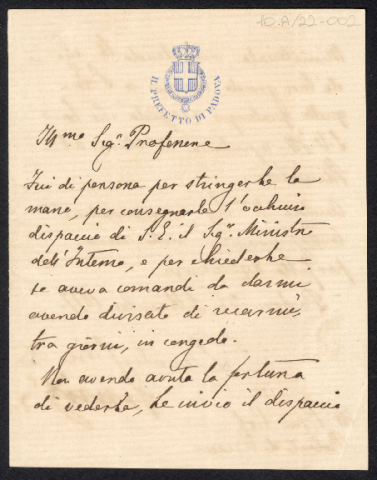 10.A/22-002
IL PREFETTO DI PADOVA
Ill.mo Sig.r Professore
Fui di persona per stringerle la
mano, per consegnarle l'acchiuso
dispaccio di S. E. il Sig.r Ministro
dell'Interno, e per chiederle
se aveva comandi da darmi
avendo divisato di recarmi,
tra giorni, in congedo.
Non avendo avuta la fortuna
di vederla, Le invio il dispaccio